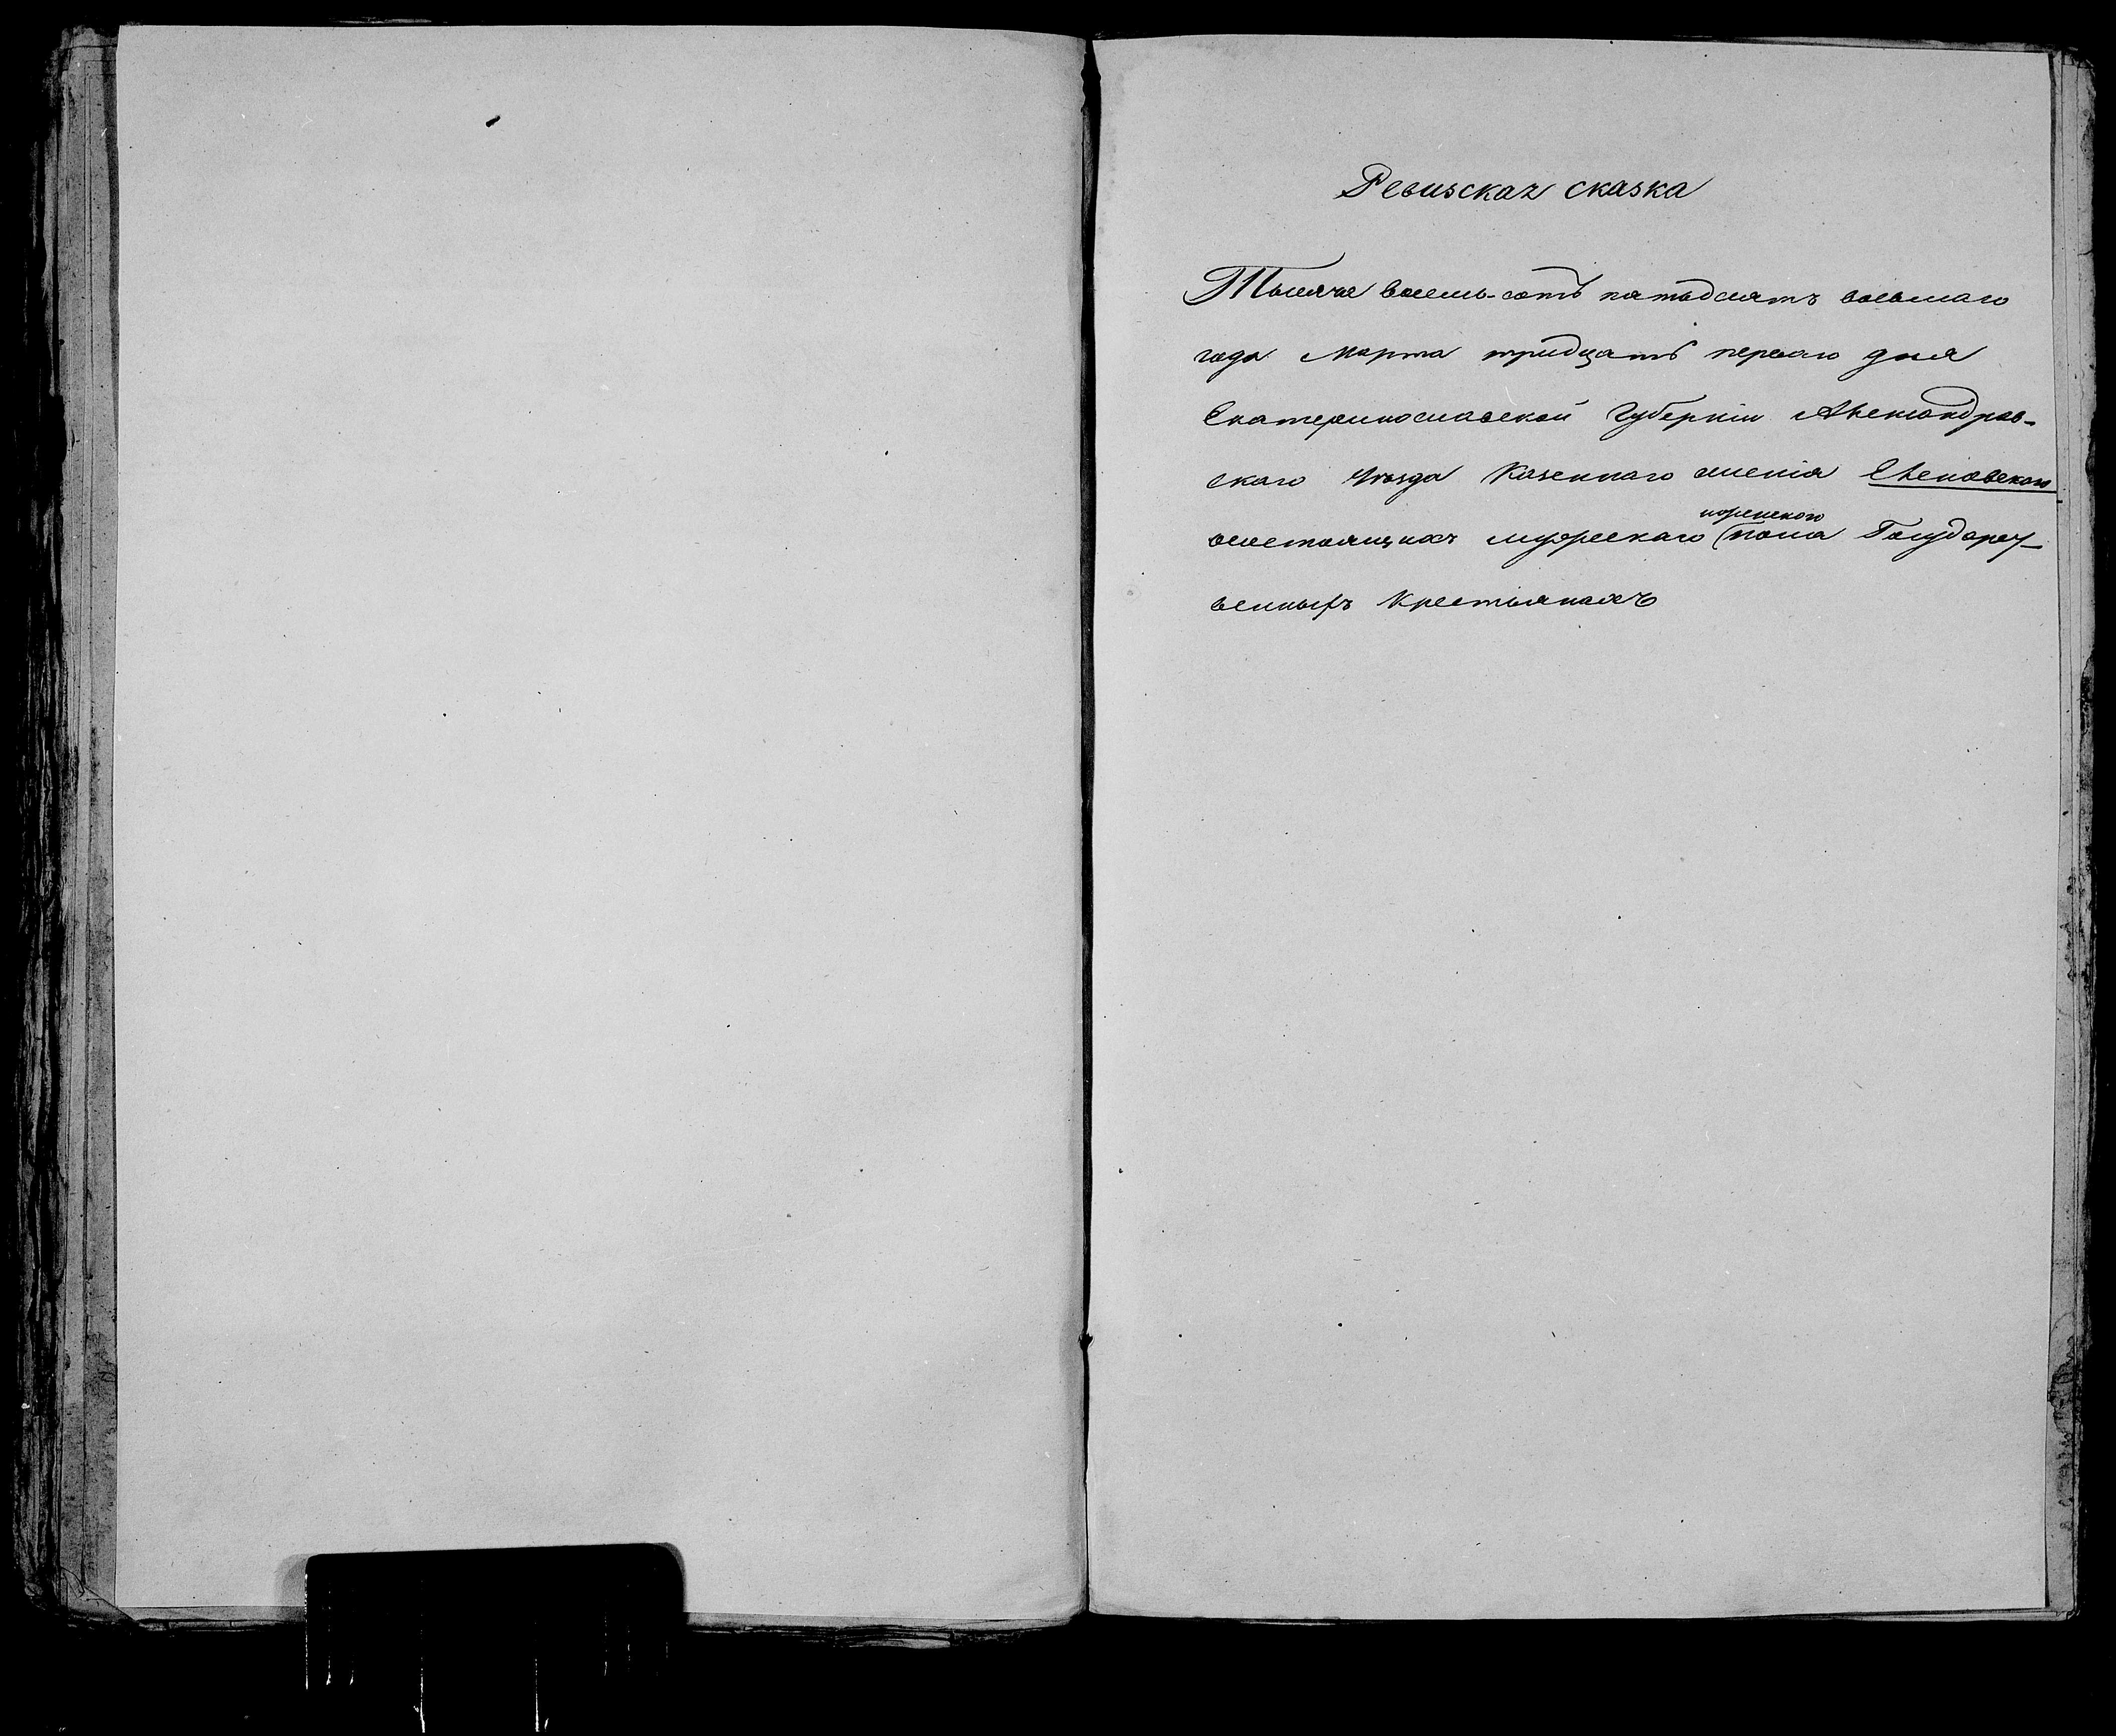 Ревизская сказка
Тысяча восемь-сотъ пятьдесятъ восьмаго
года Марта тридцать перваго дня
Екатеринославской Губерніи Александров-
скаго Уѣзда Казеннаго имѣнія
состоящихъ мужескаго пола Государст-
женскаго
венныхъ крестьянахъ